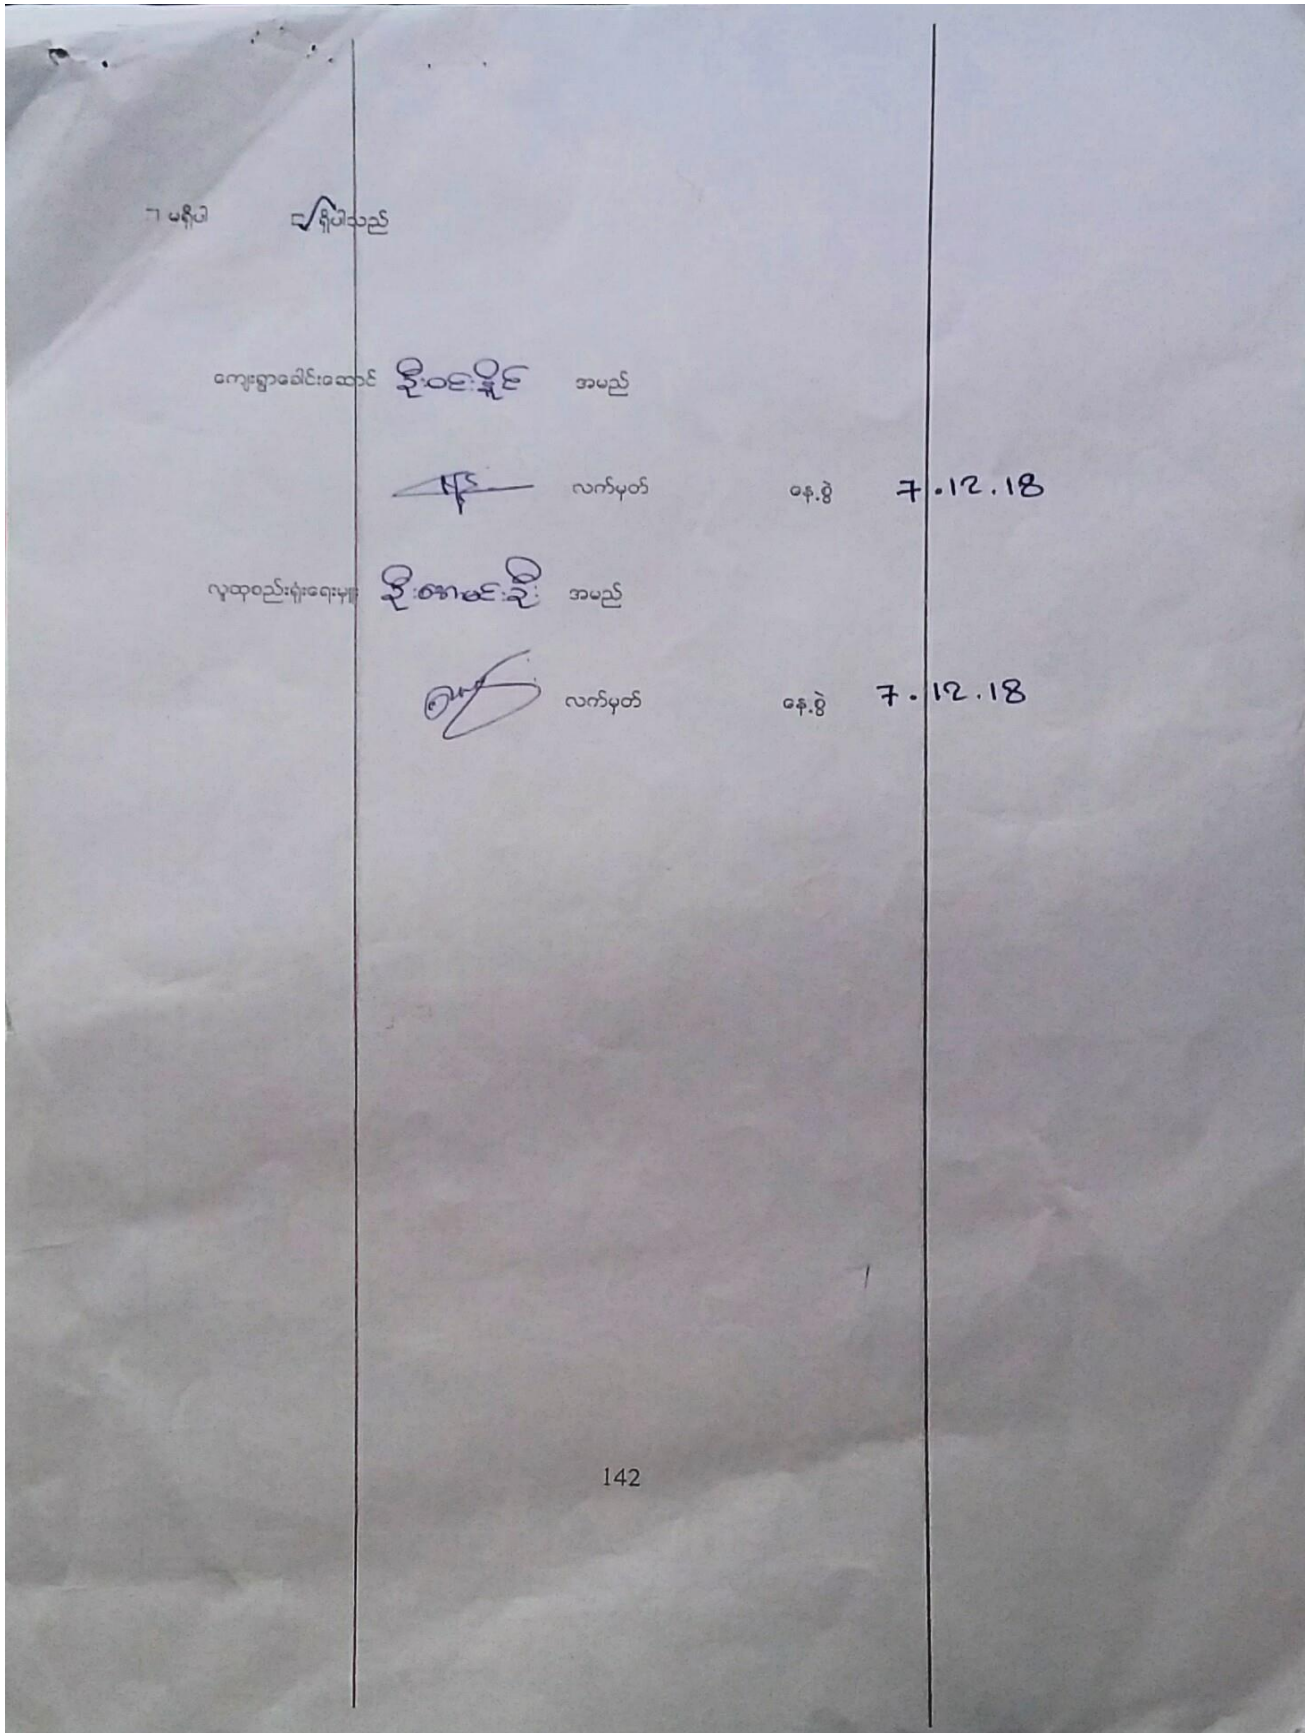 မရှိပါ ရှိပါသည်
ကျေးရွာခေါင်းဆောင် ဦးဝင်းနိုင် အမည်
လက်မှတ် နေ့စွဲ 7.12.18
လူထုစည်းရုံးရေးမှူး ဦးအေးမင်းဦး အမည်
လက်မှတ် နေ့စွဲ 7.12.18
142